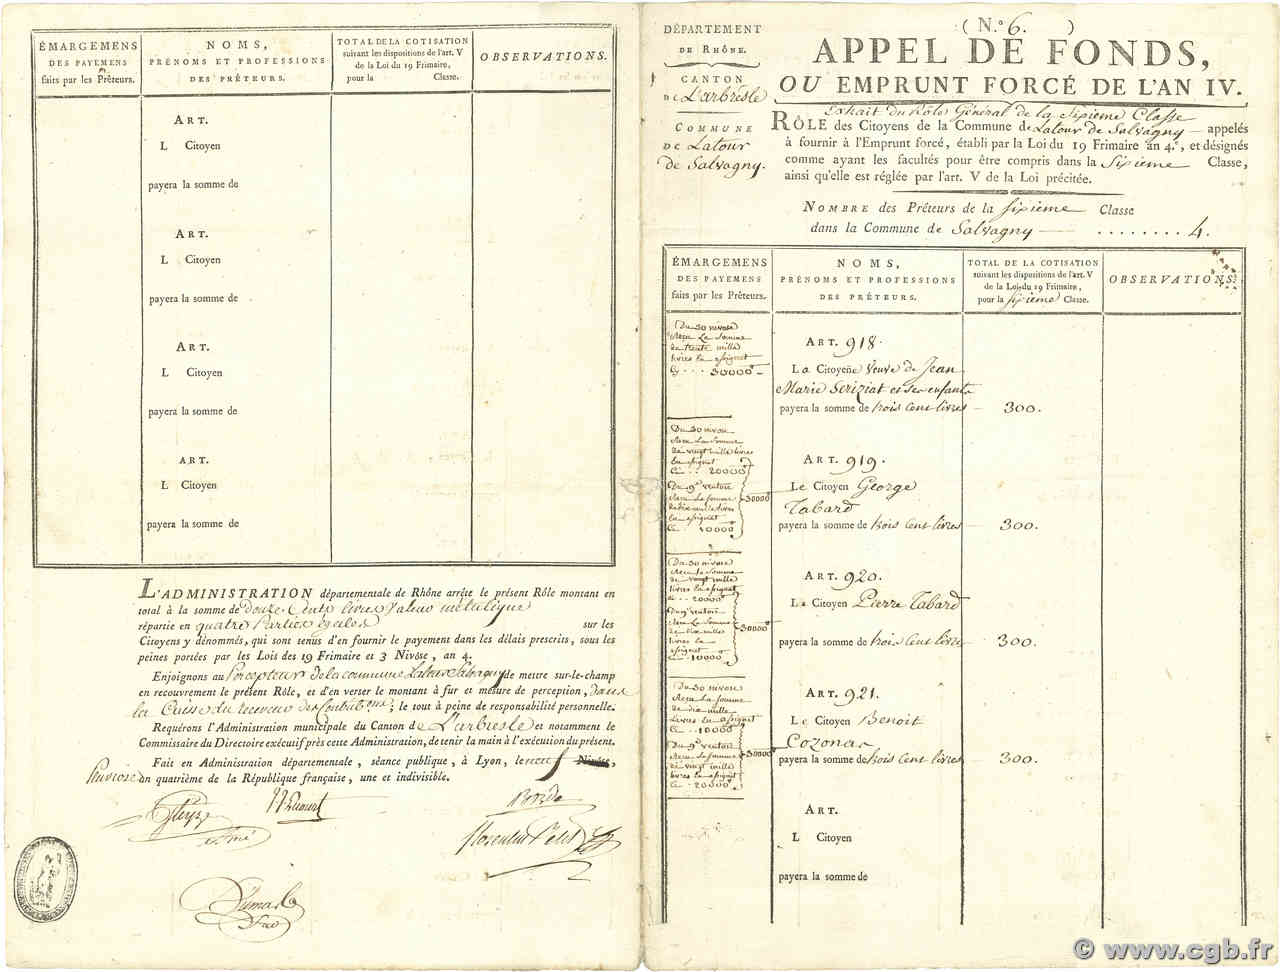 ÉMARGEMENS
DES PAYEMENS
faits par les Prêteurs.
NOMS,
PRÉNOMS ET PROFESSIONS
DES PRÊTEURS.
TOTAL DE LA COTISATION
suivant les dispositions de l'art. V
de la Loi du 19 Frimaire,
pour la Classe.
OBSERVATIONS.
ART.
L Citoyen
payera la somme de
ART.
L Citoyen
payera la somme de
ART.
L Citoyen
payera la somme de
ART.
L Citoyen
payera la somme de
L'ADMINISTRATION départementale de Rhône arrête le présent Rôle montant en
total à la somme de Douze Cents livres valeur métalique
répartie en quatre Parties égales sur les
Citoyens y dénommés, qui sont tenus d'en fournir le payement dans les délais prescrits, sous les
peines portées par les Lois des 19 Frimaire et 3 Nivôse, an 4.
Enjoignons au Percepteur de la commune Latour Salvagny de mettre sur-le-champ
en recouvrement le présent Rôle, et d'en verser le montant à fur et mesure de perception, dans
la Caisse du receveur des Contributions; le tout à peine de responsabilité personnelle.
Requérons l'Administration municipale du Canton de L'arbresle et notamment le
Commissaire du Directoire exécutif près cette Administration, de tenir la main à l'exécution du présent.
Fait en Administration départementale, séance publique, à Lyon, le neuf Nivôse,
Pluviose an quatrième de la République française, une et indivisible.
(N.° 6.)
DÉPARTEMENT
DE RHÔNE.
CANTON
DE L'arbresle
COMMUNE
DE Latour
de Salvagny.
APPEL DE FONDS,
OU EMPRUNT FORCÉ DE L'AN IV.
Extrait du Rôle Général de la Sixieme Classe
RÔLE des Citoyens de la Commune de Latour de Salvagny appelés
à fournir à l'Emprunt forcé, établi par la Loi du 19 Frimaire an 4.e, et désignés
comme ayant les facultés pour être compris dans la Sixieme Classe,
ainsi qu'elle est réglée par l'art. V de la Loi précitée.
NOMBRE des Prêteurs de la Sixieme Classe
dans la Commune de Salvagny ........ 4.
ÉMARGEMENS
DES PAYEMENS
faits par les Prêteurs.
NOMS,
PRÉNOMS ET PROFESSIONS
DES PRÊTEURS.
TOTAL DE LA COTISATION
suivant les dispositions de l'art. V
de la Loi du 19 Frimaire,
pour la Sixieme Classe.
OBSERVATIONS.
Du 30 nivose
Reçu La Somme
de trente mille
livres En assignat
Cy ... 30000#
ART. 918.
La Citoyene veuve de Jean
Marie Seriziat et ses enfants
payera la somme de trois Cent livres 300.
Du 30 nivose
Reçu La Somme
de vingt mille livres
En assignat
Cy .. 20000
Du 9e ventose
Reçu La Somme
de dix mille livres
En assignat
Cy 10000
30000
ART. 919.
Le Citoyen George
Tabard
payera la somme de trois Cent livres 300.
Du 30 nivose
Reçu La Somme
de vingt mille
livres En
assignat
Cy .. 20000
Du 9e ventose
Reçu La Somme
de dix milles
livres En
assignat
Cy 10000
30000
ART. 920.
Le Citoyen Pierre Tabard
payera la somme de trois Cent livres 300.
Du 30 nivose
Reçu La Somme
de dix mille
Livres En assignat
Cy .. 10000
Du 9e ventose
Reçu La Somme
de vingt mille
livres En assignat
Cy 20000
30000
ART. 921.
Le Citoyen Benoit
Cozonas
payera la somme de trois Cent livres 300.
ART.
L Citoyen
payera la somme de
© www.cgb.fr